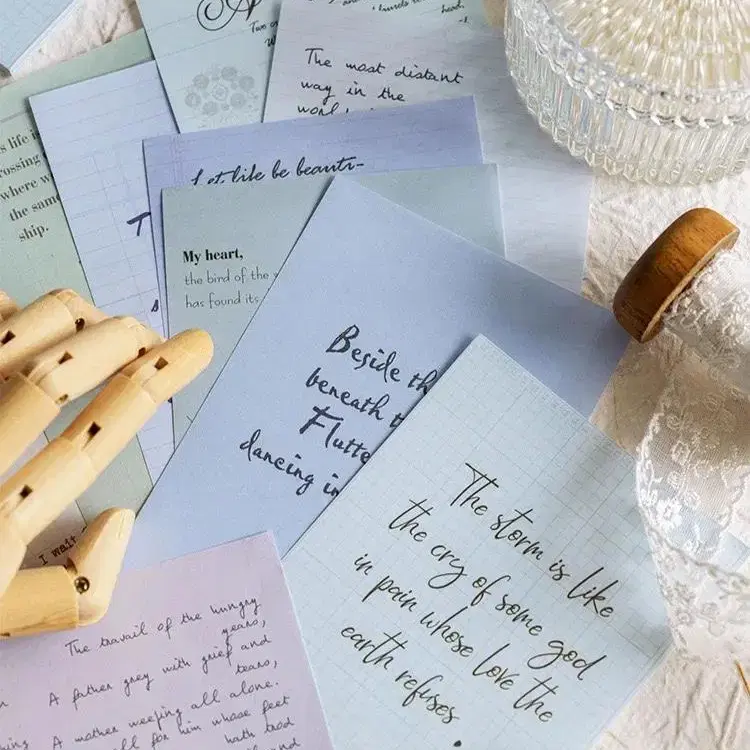 Two
The most distant
way in the
world is
s life is
crossing
where w
the same
ship.
Let life be beauti-
My heart,
the bird of the
has found its
Beside th
beneath t
Flutte
dancing in
The storm is like
the cry of some god
in pain whose love the
earth refuses.
I wait
The travail of the hungry
years,
A father grey with grief and
tears,
A mother weeping all alone.
for him whose feet
hath trod
and